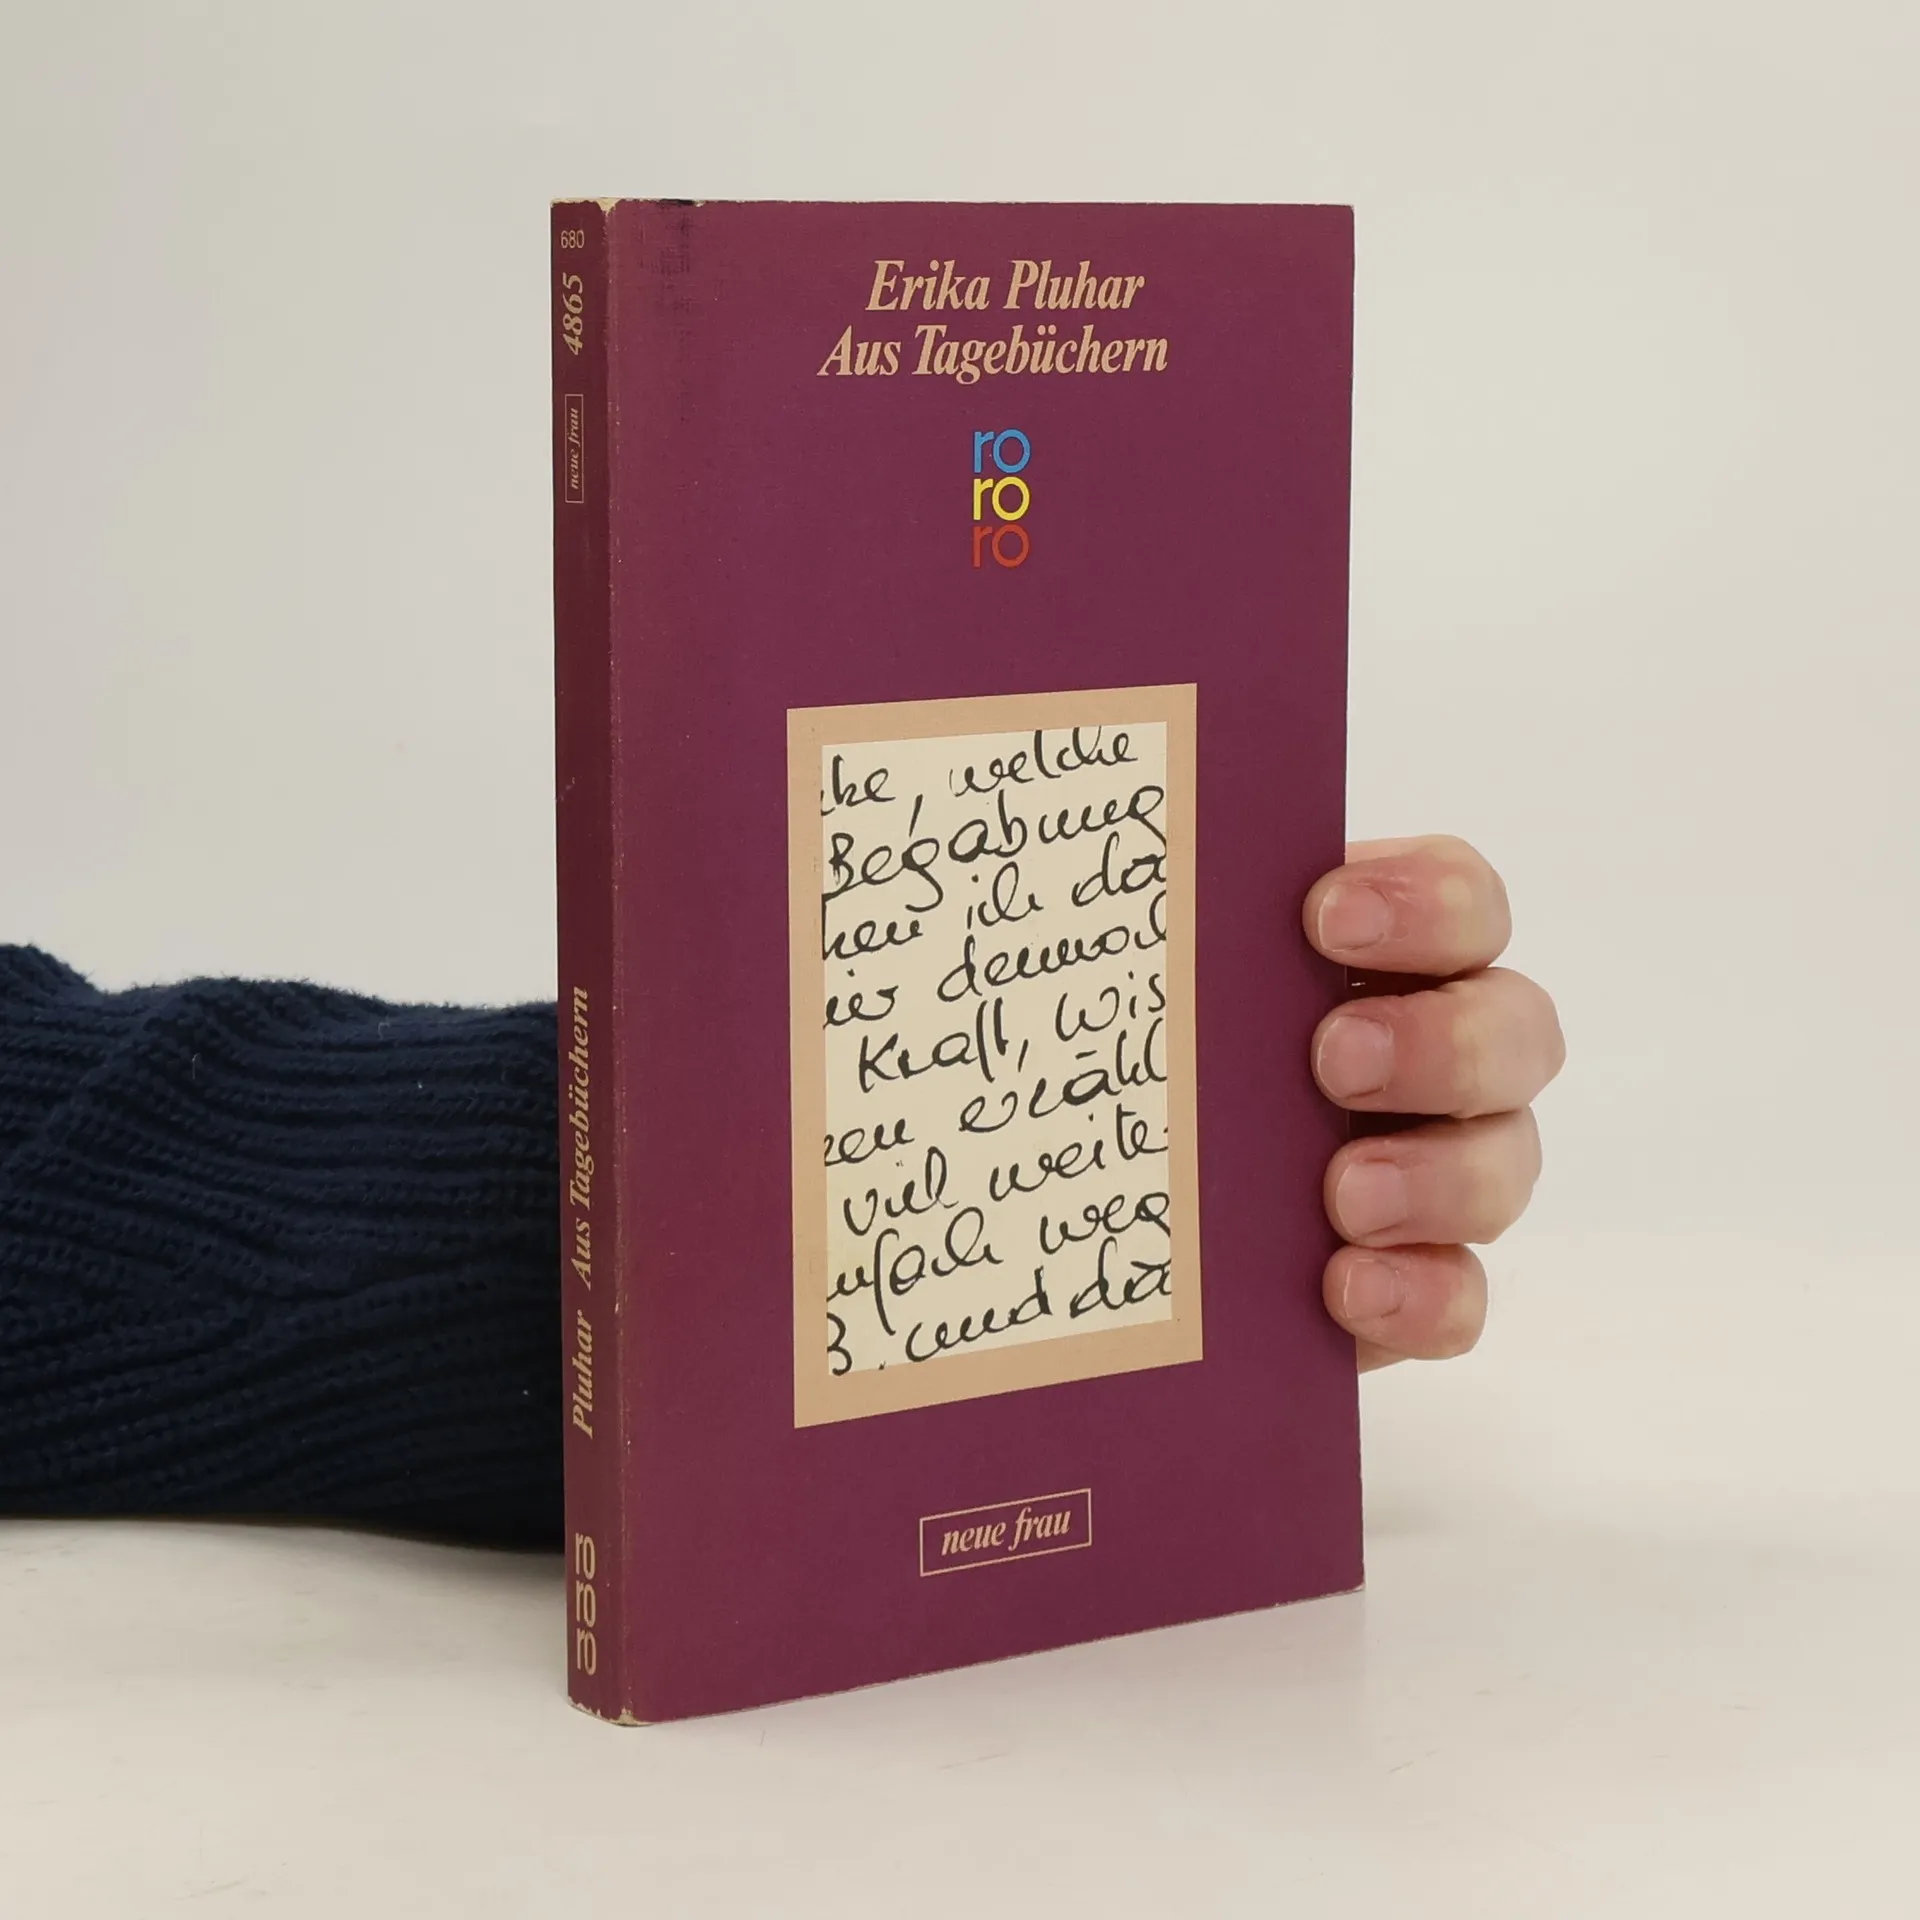 Erika Pluhar
Aus Tagebüchern
ro
ro
ro
ke, welche
Begabung
hen ich da
ier dennoch
Kraft, Wis
zen erzähl
viel weite
nfach weg
B. und da
neue frau
680
4865
neue frau
Pluhar Aus Tagebüchern
ro ro ro